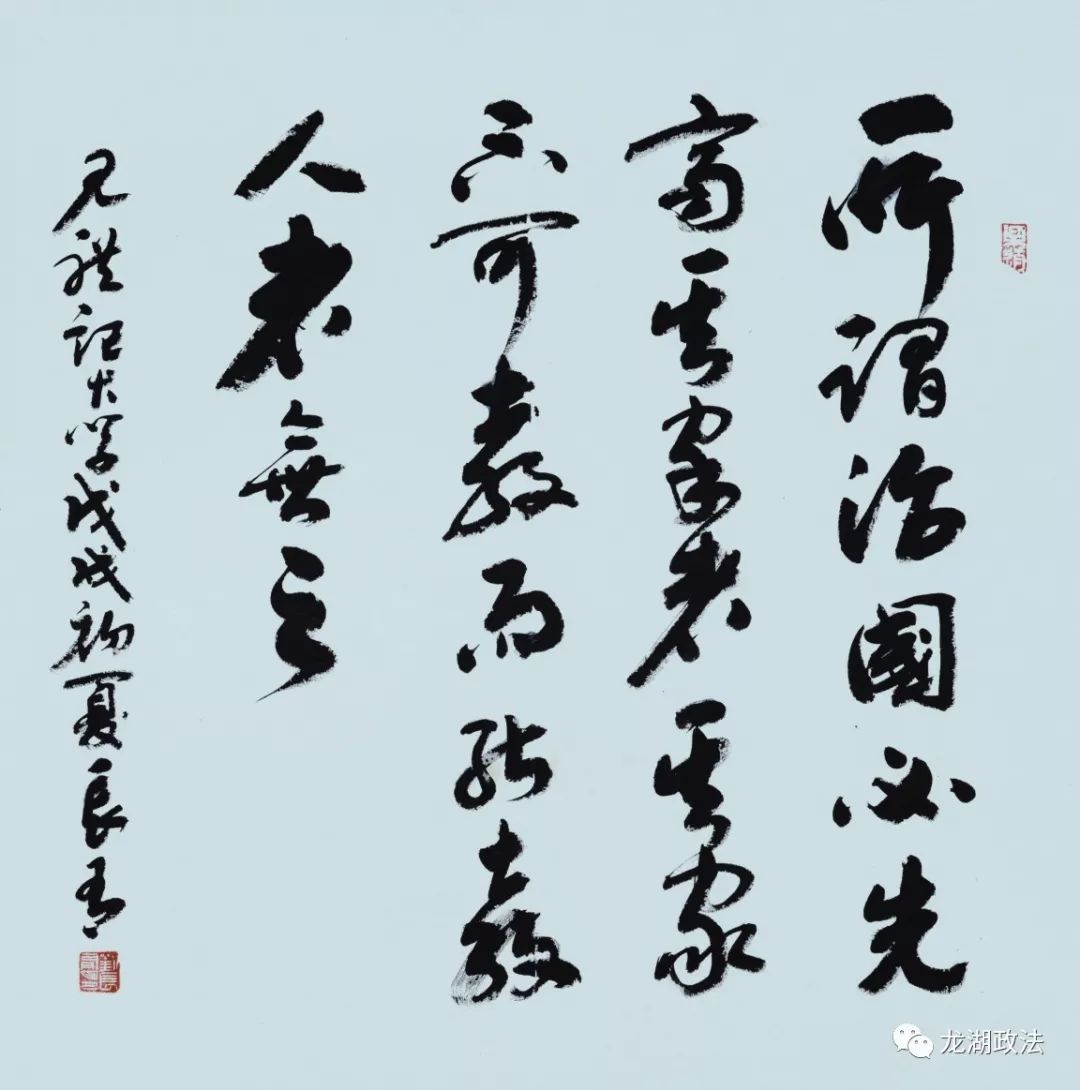 所謂治國必先
齊其家者其家
不可教而能教
人者無之
見禮記大學戊戌初夏長青
龙湖政法